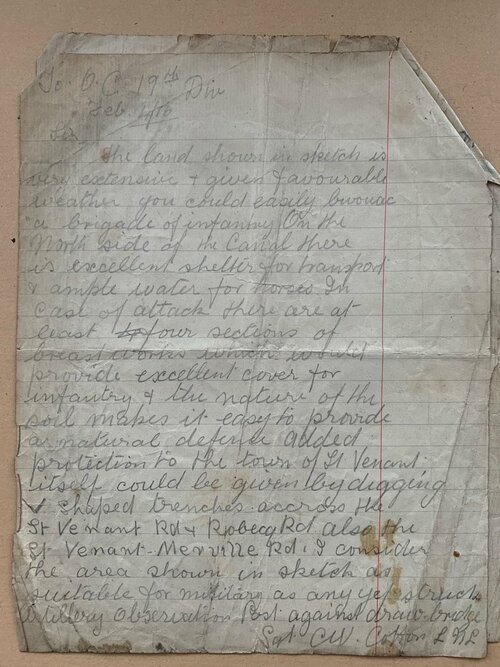 To O.C. 19th Div
Feb 4/16
Sir
The land shown in sketch is
very extensive & given favourable
weather you could easily bivouac
a brigade of infantry On the
North side of the Canal there
is excellent shelter for transport
& ample water for horses In
case of attack there are at
least four sections of
breastworks which would
provide excellent cover for
infantry & the nature of the
soil makes it easy to provide
a natural defence added
protection to the town of St Venant
itself could be given by digging
V shaped trenches accross the
St Venant Rd & Robecq Rd also the
St Venant-Merville Rd. I consider
the area shown in sketch as
suitable for military as any yet struck
Artillery Observation Post against draw-bridge
Sgt. C.W. Cotton